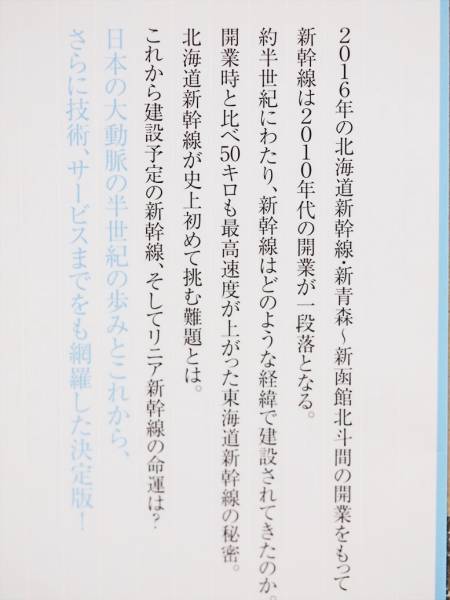 2016年の北海道新幹線・新青森〜新函館北斗間の開業をもって
新幹線は2010年代の開業が一段落となる。
約半世紀にわたり、新幹線はどのような経緯で建設されてきたのか。
開業時と比べ50キロも最高速度が上がった東海道新幹線の秘密。
北海道新幹線が史上初めて挑む難題とは。
これから建設予定の新幹線、そしてリニア新幹線の命運は?
日本の大動脈の半世紀の歩みとこれから、
さらに技術、サービスまでをも網羅した決定版!